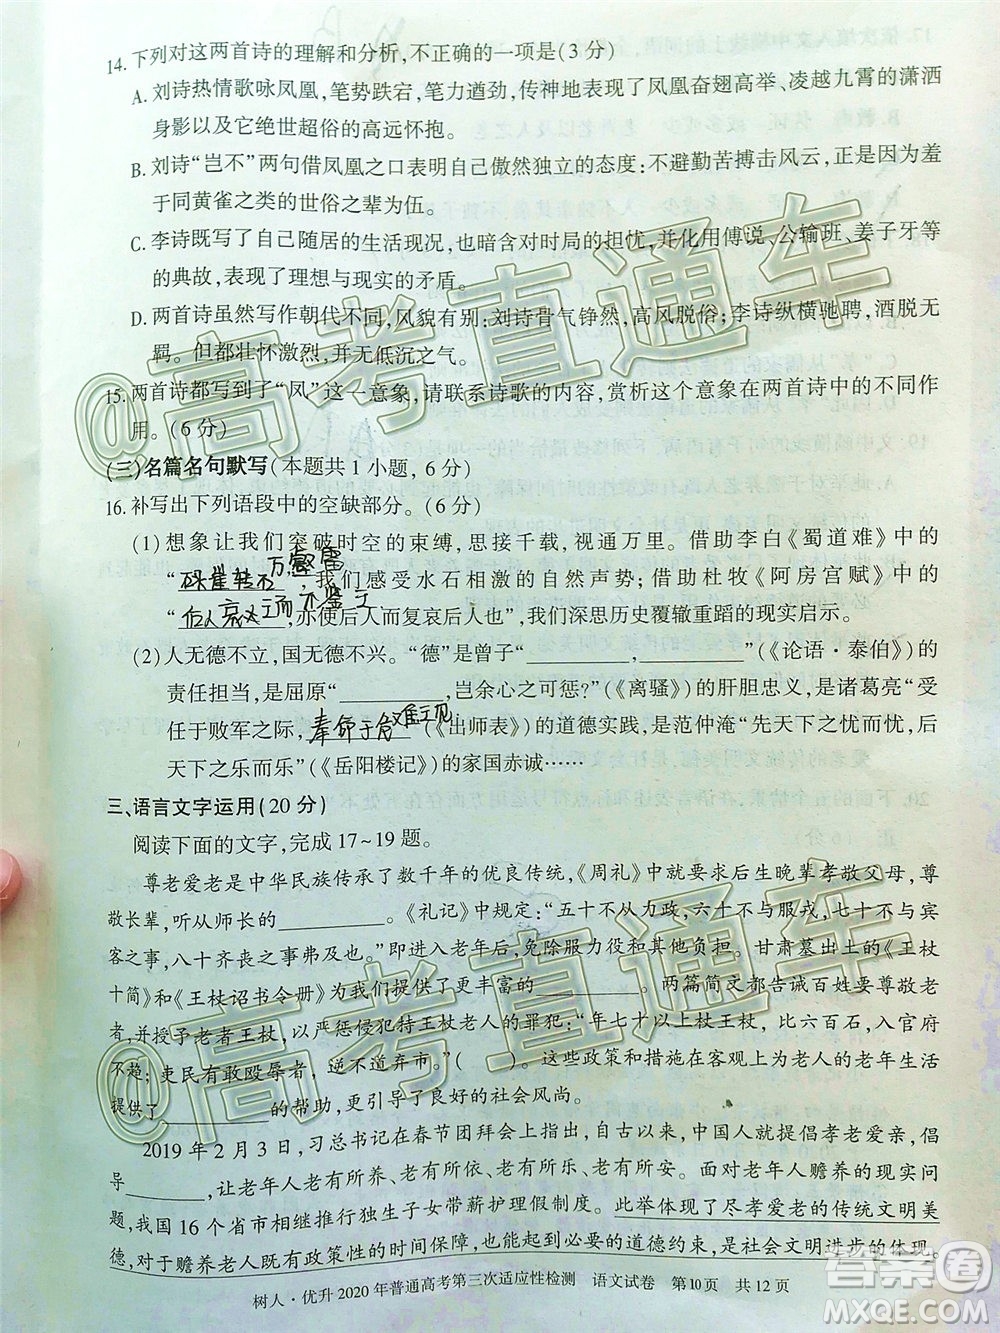 14. 下列对这两首诗的理解和分析,不正确的一项是(3分)
A. 刘诗热情歌咏凤凰,笔势跌宕,笔力遒劲,传神地表现了凤凰奋翅高举、凌越九霄的潇洒
身影以及它绝世超俗的高远怀抱。
B. 刘诗“岂不”两句借凤凰之口表明自己傲然独立的态度:不避勤苦搏击风云,正是因为羞
于同黄雀之类的世俗之辈为伍。
C. 李诗既写了自己随居的生活现况,也暗含对时局的担忧,并成功使用傅说、公输班、姜子牙等
的典故,表现了理想与现实的矛盾。
D. 两首诗虽然写作朝代不同,风貌有别:刘诗骨气铮然,高风脱俗;李诗纵横驰骋,洒脱无
羁。但都壮怀激烈,并无低沉之气。
15. 两首诗都写到了“凤”这一意象,请联系诗歌的内容,赏析这个意象在两首诗中的不同作
用。(6分)
(三)名篇名句默写(本题共1小题,6分)
16. 补写出下列语段中的空缺部分。(6分)
(1)想象让我们突破时空的束缚,思接千载,视通万里。借助李白《蜀道难》中的
“砯崖转石万壑雷”,我们感受水石相激的自然声势;借助杜牧《阿房宫赋》中的
“后人哀之而不鉴之,亦使后人而复哀后人也”,我们深思历史覆辙重蹈的现实启示。
(2)人无德不立,国无德不兴。“德”是曾子“________,________”(《论语·泰伯》)的
责任担当,是屈原“________,岂余心之可惩?”(《离骚》)的肝胆忠义,是诸葛亮“受
任于败军之际,奉命于危难之间”(《出师表》)的道德实践,是范仲淹“先天下之忧而忧,后
天下之乐而乐”(《岳阳楼记》)的家国赤诚……
三、语言文字运用(20分)
阅读下面的文字,完成17~19题。
尊老爱老是中华民族传承了数千年的优良传统,《周礼》中就要求后生晚辈孝敬父母,尊
敬长辈,听从师长的________。《礼记》中规定:“五十不从力政,六十不与服戎,七十不与宾
客之事,八十齐丧之事弗及也。”即进入老年后,免除服力役等其他负担。甘肃墓出土的《王杖
十简》和《王杖诏书令册》为我们提供了更丰富的________。两篇简文都告诫百姓要尊敬老
者,并授予老者王杖,以严惩侵犯持王杖老人的罪犯:“年七十以上杖王杖,比六百石,入官府
不趋;吏民有敢殴辱者,逆不道弃市。”(  )。这些政策和措施在客观上为老人的老年生活
提供了________的帮助,更引导了良好的社会风尚。
2019年2月3日,习总书记在春节团拜会上指出,自古以来,中国人就提倡孝老爱亲,倡
导________,让老年人老有所养、老有所依、老有所乐、老有所安。面对老年人赡养的现实问
题,我国16个省市相继推行独生子女带薪护理假制度。此举体现了尽孝爱老的传统文明美
德,对于赡养老人既有政策性的时间保障,也能起到必要的道德约束,是社会文明进步的体现。
树人·优升2020年普通高考第三次适应性检测 语文试卷 第10页 共12页
@高考直通车
@高考直通车
答案圈
MXQE.COM